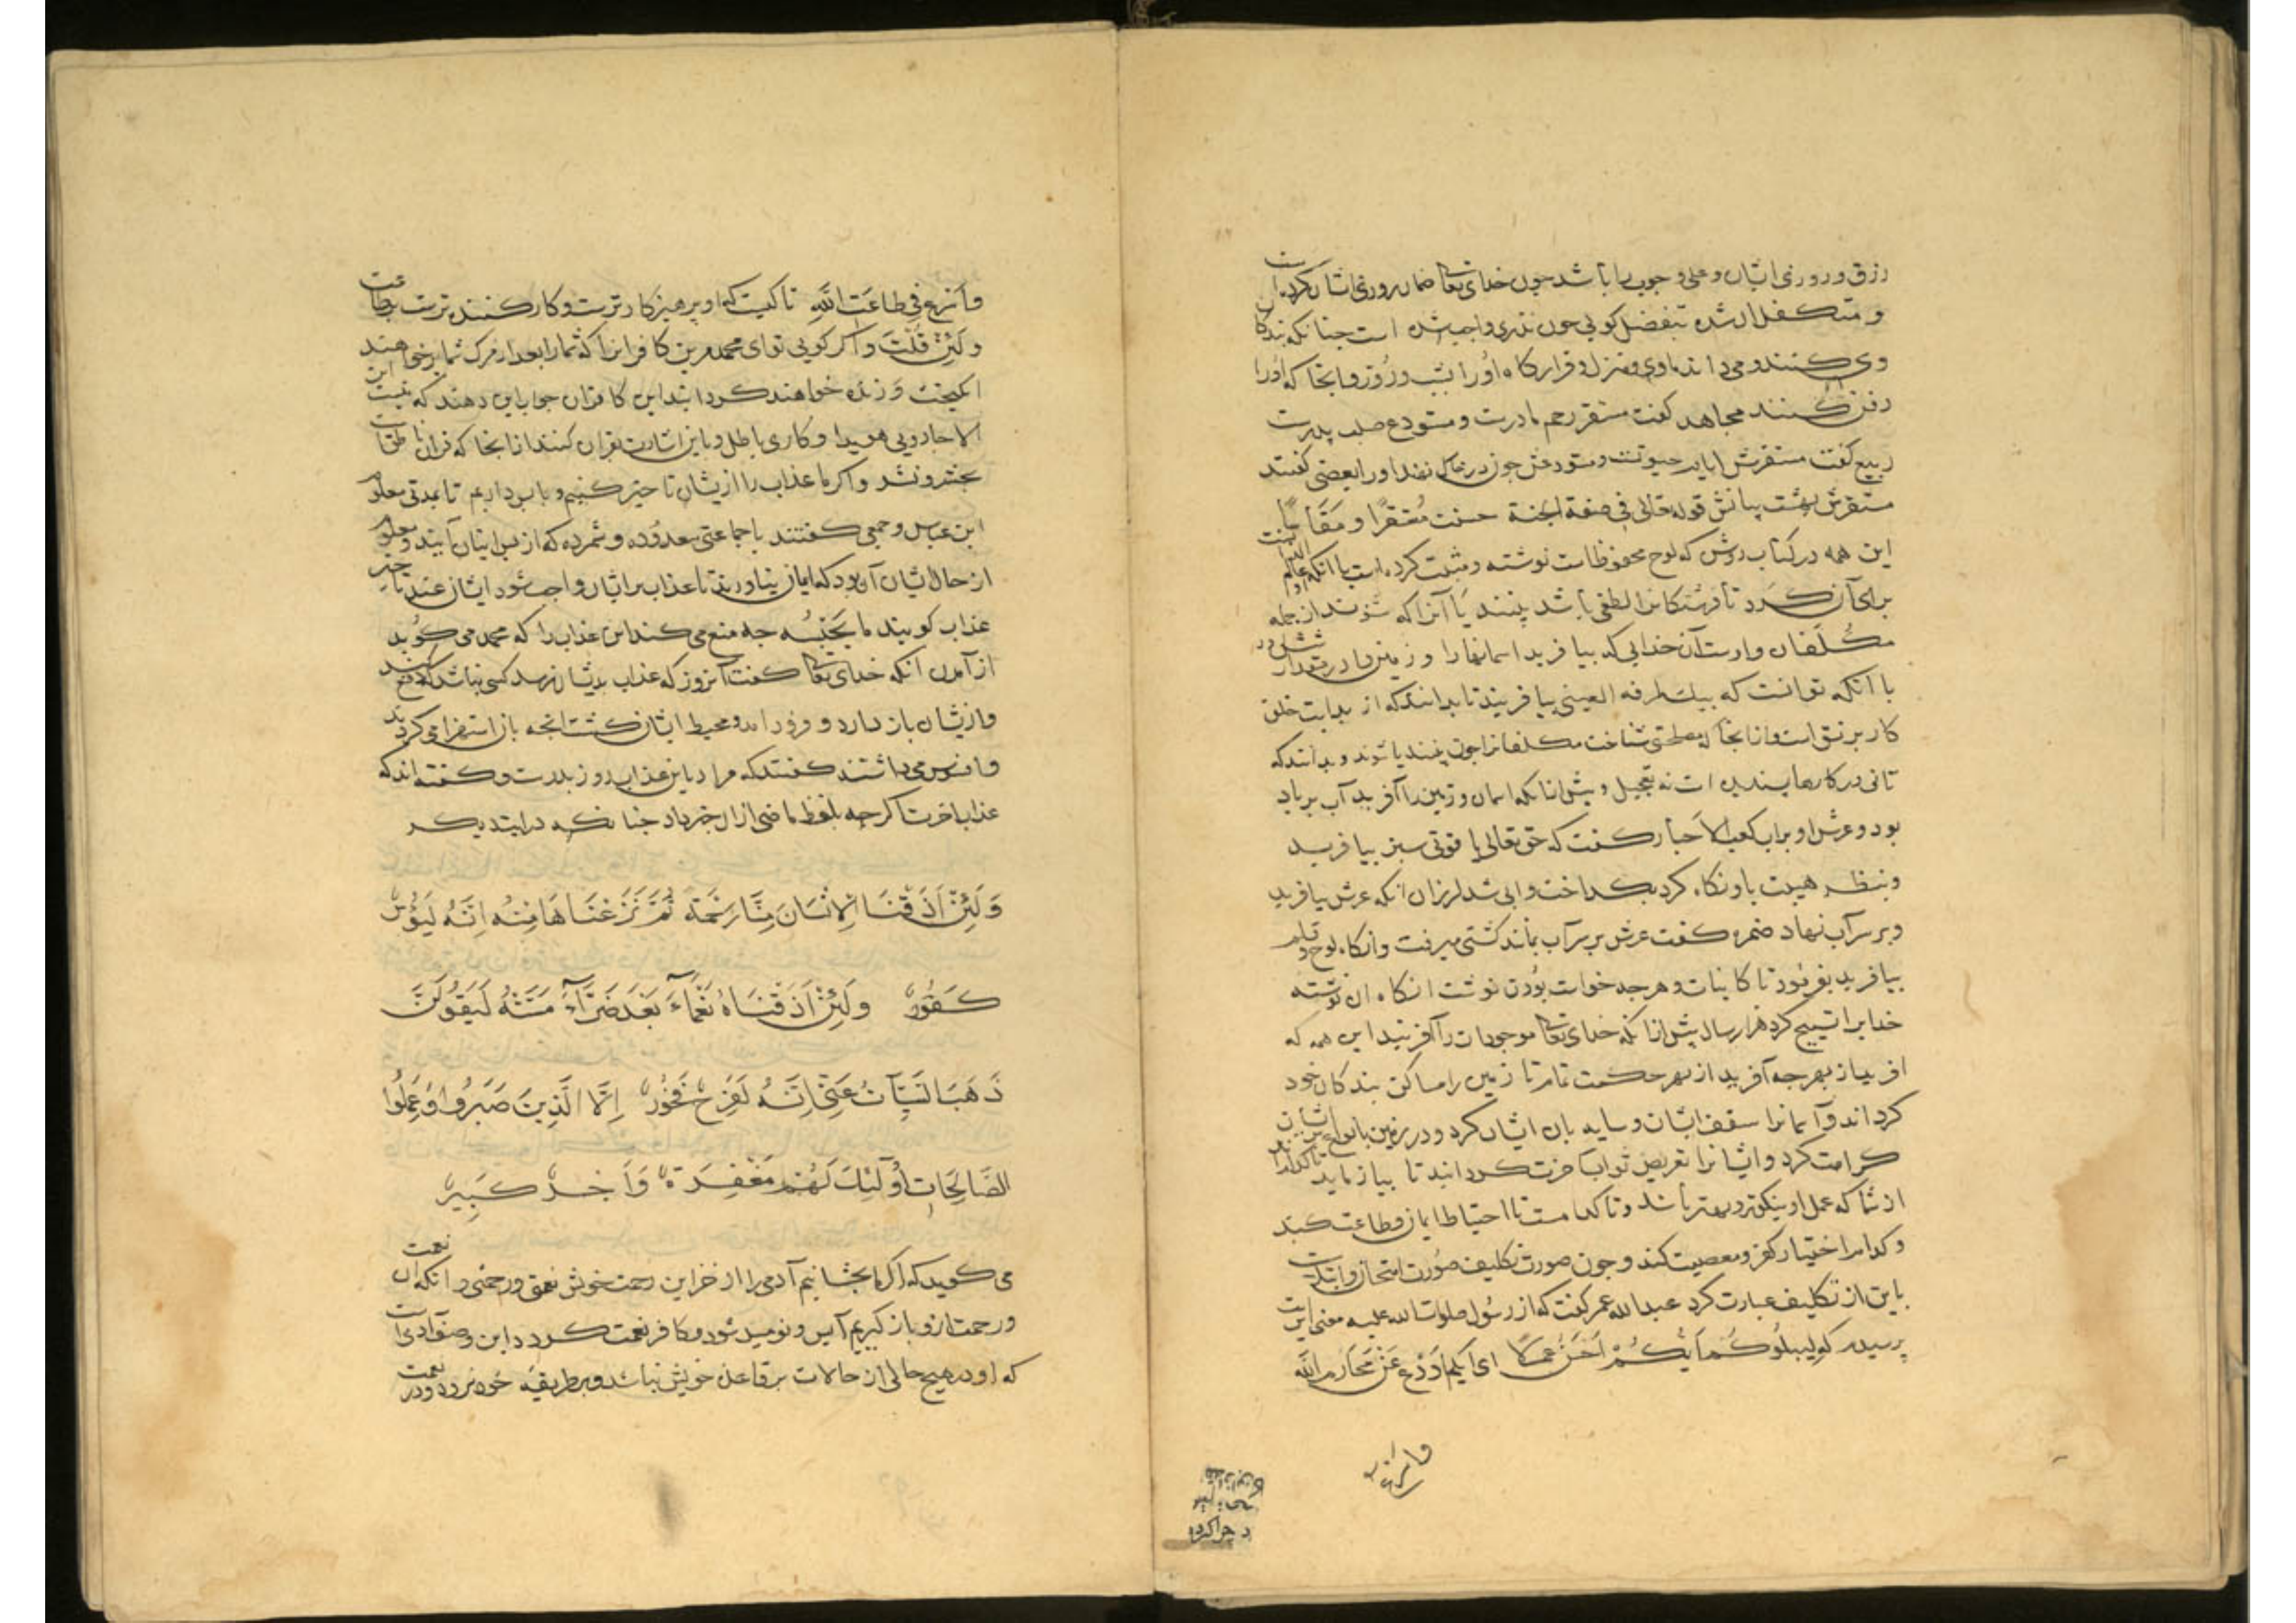 رزق و روزی ایشان و علی وجوب را باشد چون خدای تعا ضمان روزی ایشان کرده است
و متکفل ان شده بتفضل کویی چون نذری واجب شده است جنانکه بندکان
وی کنند و می داند ماوی و منزل و قرارکاه او را بشب و روز و بانجا که او را
دفن کنند مجاهد کفت مستقر رحم مادرست و مستودع صلب پدرست
ربیع کفت مستقرش ایام حیوتست و مستودعش جون در خاک نهند او را بعضی کفتند
مستقرش بهشت بیانش قوله تعالی فی صفة الجنة حسنت مستقرا و مقاما
این همه در کتاب روشن که لوح محفوظ است نوشته و مثبت کرده است با انکه عالم
برای آن کرد تا فرشتکانرا لطفی باشد بینند یا آنرا که شنوند از جمله
مکلفان و اوست آن خدایی که بیافرید اسمانها را و زمین را در مقدار شش روز
با انکه توانست که بیک طرفة العینی بیافریند تا بدانند که از بدایت خلق
کار بر نسق است و ازانجا که مصلحتی شناخت مکلفانرا چون بینند یا شنوند و بدانند که
تانی در کارها پسندیده است نه تعجیل و پیش ازانکه اسمان و زمین را آفرید آب بر باد
بود و عرش او بر اب کعب الاحبار کفت که حق تعالی یاقوتی سبز بیافرید
و بنظر هیبت باو نکاه کرد بکداخت و ابی شد لرزان انکه عرش بیافرید
و بر سر آب نهاد ضمره کفت عرش بر سر آب مانند کشتی میرفت و انکاه لوح و قلم
بیافرید بفرمود تا کاینات و هرجه خواست بودن نوشت انکاه ان نوشته
خدایرا تسبیح کرد هزار سال پیش ازانکه خدای تعا موجودات را آفرینید این همه که
افرید از بهر جه آفرید از بهر حکمت تمام تا زمین را مساکن بندکان خود
کرداند و آسمانرا سقف ایشان و سایه بان ایشان کرد و در زمین بانواع
کرامت کرد و ایشانرا تعریض ثواب اخرت کردانید تا بیازماید تا کدام
از شما که عمل او نیکوتر و بهتر باشد و تا کدامست تا احتیاط ایمان و طاعت کند
و کدام اختیار کفر و معصیت کند و جون صورت تکلیف صورت امتحان و ابتلاست
باین از تکلیف عبارت کرد عبد الله عمر کفت که از رسول صلوات الله علیه معنی این
پرسیدم که لیبلوکم ایکم احسن عملا ای ایکم اورع عن محارم الله
واسرع فی
واسرع فی طاعت الله تا کیست که او پرهیزکارترست و کارکننده ترست بطاعت
ولئن قلت و اکر کویی تو ای محمد مرین کافرانرا که شما را بعد از مرک شما برخواهند
انکیخت و زنده خواهند کردانید این کافران جواب این دهند که نیست این
الا جادویی هویدا و کاری باطل و باین اشارت بقران کنند ازانجا که قران ناطق است
ببعث و نشر و اکر ما عذاب را ازیشان تاخیر کنیم و باپس داریم تا بمدتی معلوم
ابن عباس و جمعی کفتند باجماعتی معدوده و شمرده که از پس ایشان آیند و معلوم
از حال ایشان آن بود که ایمان نیاورند تا عذاب بر ایشان واجب شود ایشان عند تاخیر
عذاب کویند ما یحبسه جه منع می کند این عذاب را که محمد می کوید
از آمدن انکه خدای تعا کفت آنروز که عذاب بدیشان رسد کسی نباشد که دفع کند
و ازیشان باز دارد و فرود امد و محیط ایشان کشت انجه بان استهزا می کردند
و افسوس می داشتند کفتند که مراد باین عذاب روز بدرست و کفته اند که
عذاب اخرت اکرجه بلفظ ماضی ازان خبر داد جنانکه در ایت دیکر
وَلَئِنْ اَذَقْنَا الْاِنْسَانَ مِنَّا رَحْمَةً ثُمَّ نَزَعْنَاهَا مِنْهُ اِنَّهُ لَيَؤُسٌ
كَفُورٌ وَلَئِنْ اَذَقْنَاهُ نَعْمَاءَ بَعْدَ ضَرَّاءَ مَسَّتْهُ لَيَقُولَنَّ
ذَهَبَ السَّيِّاٰتُ عَنِّي اِنَّهُ لَفَرِحٌ فَخُورٌ اِلَّا الَّذِينَ صَبَرُوا وَعَمِلُوا
الصَّالِحَاتِ اُولٰئِكَ لَهُمْ مَغْفِرَةٌ وَاَجْرٌ كَبِيرٌ
می کوید که اکر ما بچشانیم آدمی را از خزاین رحمت خویش نعمتی و رحمتی و انکه ان نعمت
و رحمت ازو باز کیریم آیس و نومید شود و کافر نعمت کردد و این وصف آدمی است
که او در هیچ حالی از حالات بر قاعده خویش نباشد و بر طریقه خود نرود و در نعمت